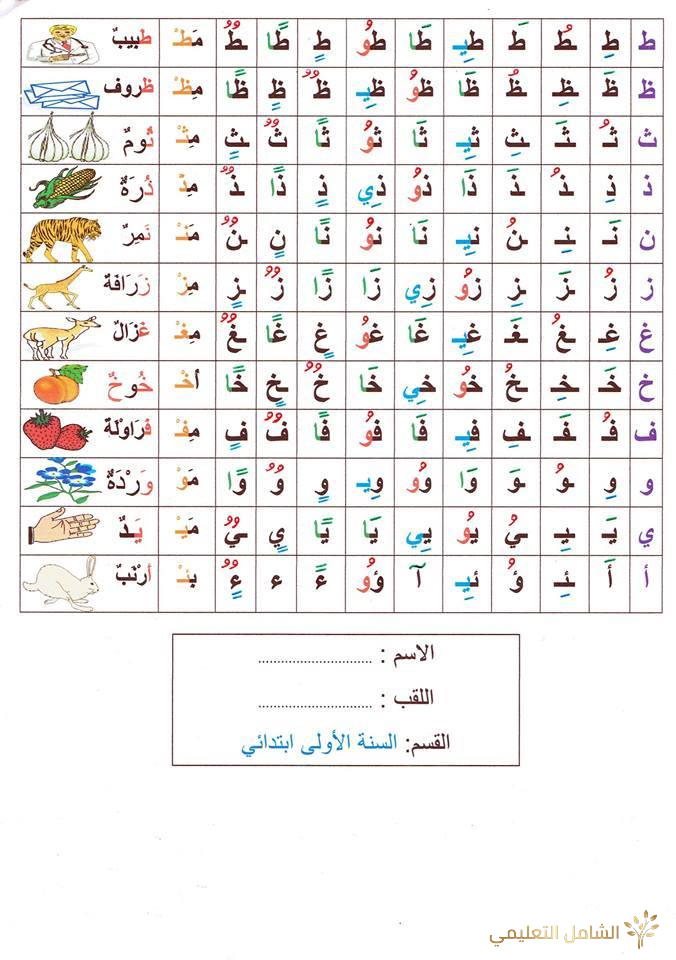 ط طِ طُ طَ طِي طَا طُو طٍ طًا طٌ مَطْ طبيبٌ
ظ ظَ ظِ ظُ ظَا ظُو ظِي ظٌ ظٍ ظًا مِظْ ظروف
ث ثُ ثَ ثِ ثِي ثَا ثُو ثًا ثٌ ثٍ مِثْ ثُومٌ
ذ ذِ ذُ ذَ ذَا ذُو ذِي ذٍ ذًا ذٌ مِذْ ذُرَةٌ
ن نَ نِ نُ نِي نَا نُو نًا نٍ نٌ مَنْ نَمِرٌ
ز زُ زَ زِ زُو زِي زَا زًا زٌ زٍ مِزْ زَرَافَةٌ
غ غِ غُ غَ غِي غَا غُو غٍ غًا غٌ مِغْ غَزَالٌ
خ خَ خِ خُ خُو خِي خَا خٌ خٍ خًا أخْ خُوخٌ
ف فُ فَ فِ فِي فَا فُو فًا فٌ فٍ مِفْ فَرَاوْلَة
و وِ وُ وَ وَا وُو وِي وٍ وٌ وًا مَوْ وَرْدَةٌ
ي يَ يِ يُ يُو يِي يَا يًا يٍ يٌ مَيْ يَدٌ
أ أَ ئِ ؤُ ئِي آ ؤُو ءً ء أرْنَبٌ
الاسم : ..............................
اللقب : ..............................
القسم: السنة الأولى ابتدائي
الشامل التعليمي